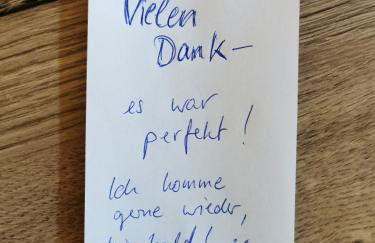 Vielen
Dank –
es war
perfekt!
Ich komme
gerne wieder,